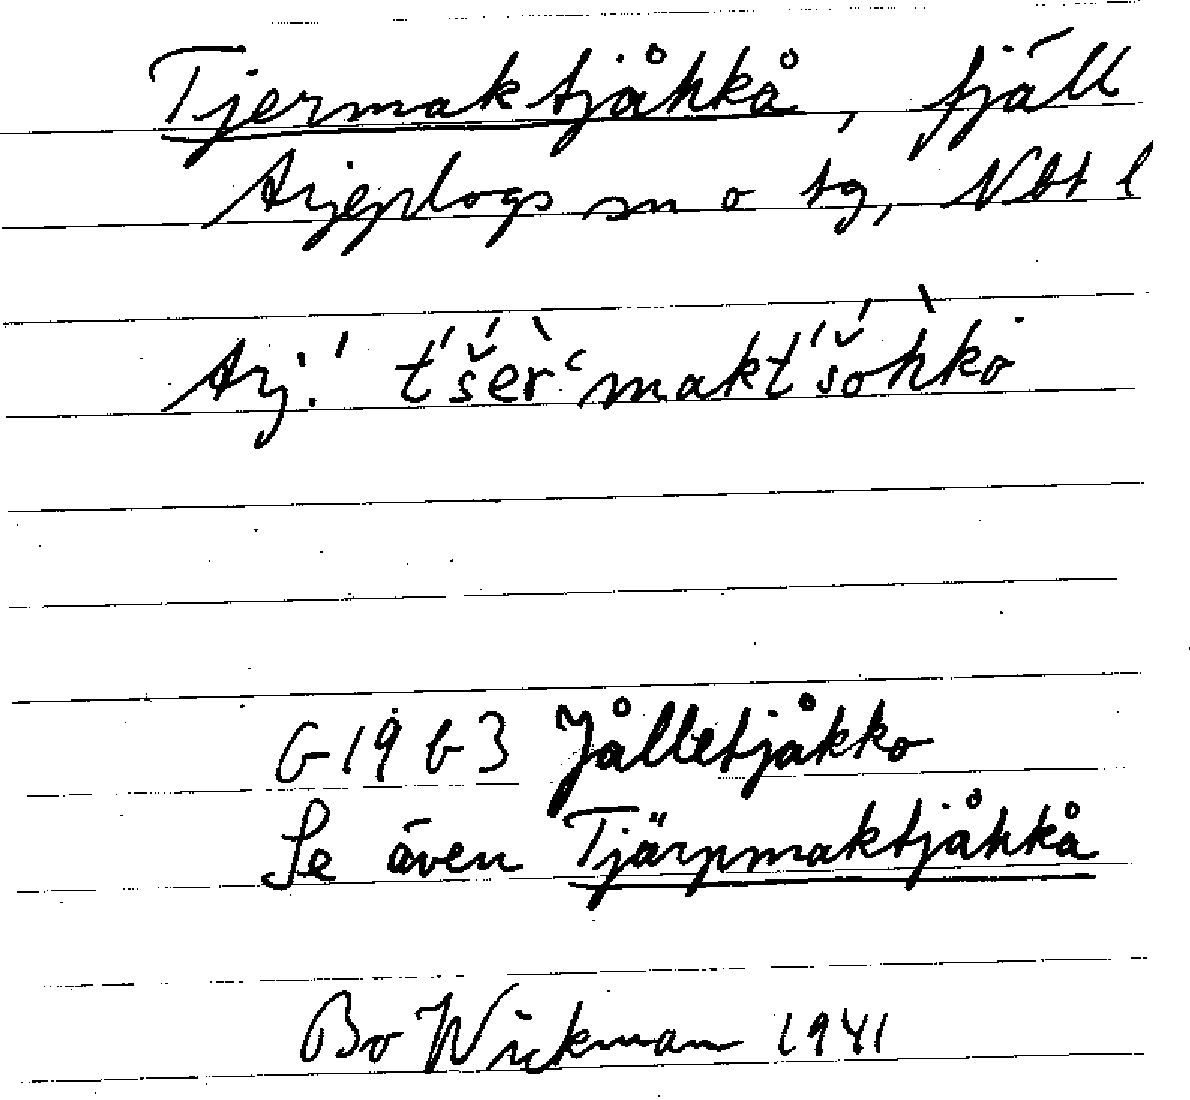 Tjermaktjåhkå, fjäll
Arjeplogs sn o tg, Nbt l
Arj.' t́'š́èr‘makt́'š́òhko
G 1963 Jålletjåkko
Se även Tjärpmaktjåhkå
Bo Wickman 1941